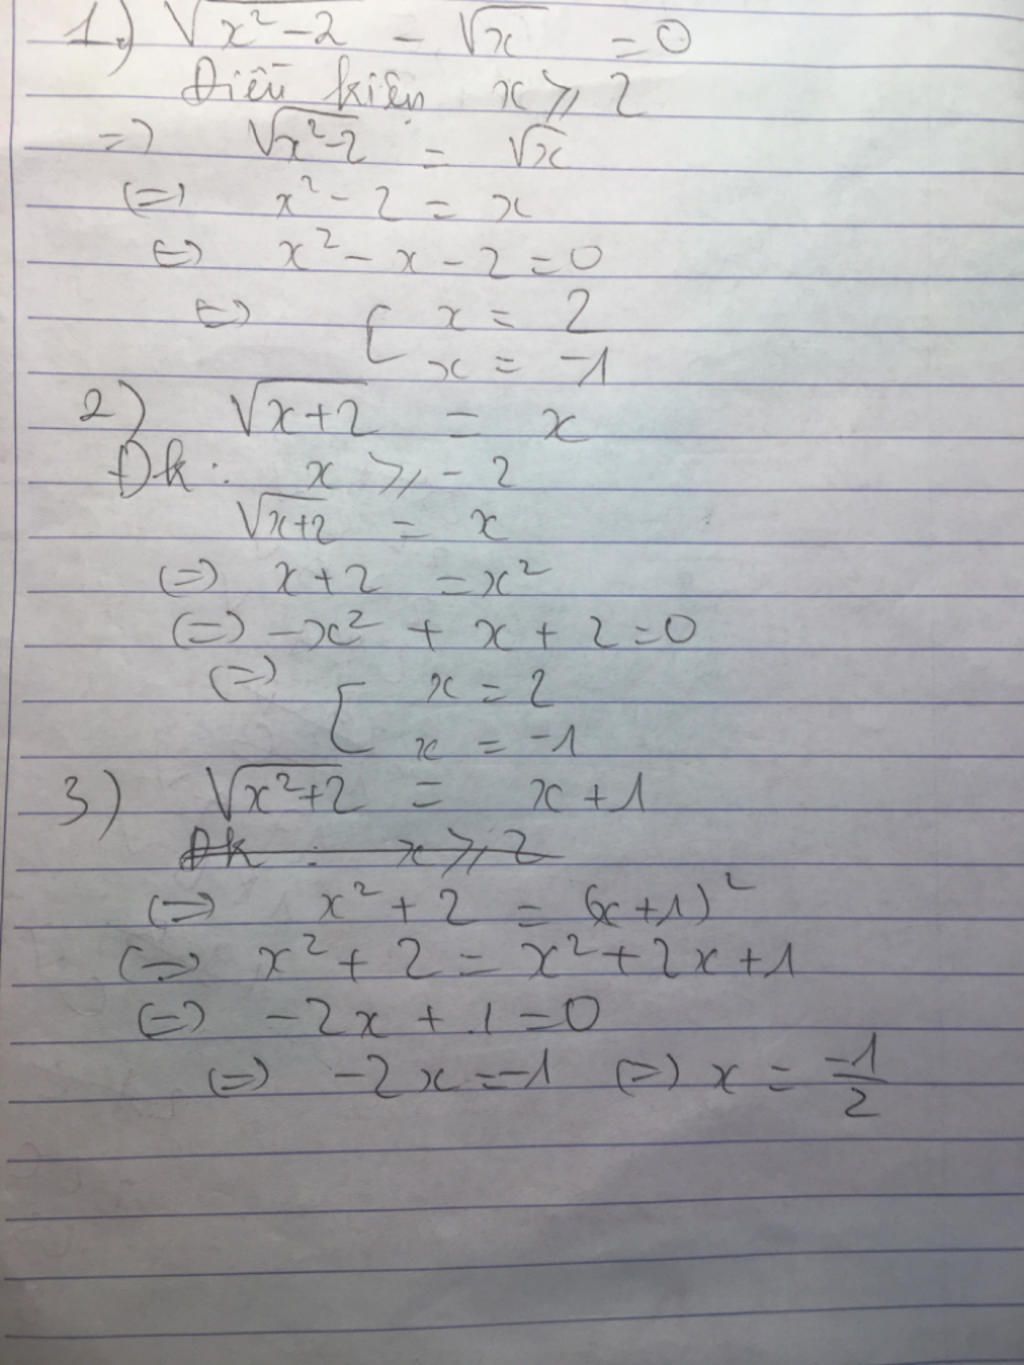 1.) √(x² - 2) - √x = 0
Điều kiện x ⩾ 2
=> √(x² - 2) = √x
(=) x² - 2 = x
<=> x² - x - 2 = 0
<=> [ x = 2
x = -1
2) √(x + 2) = x
Đk : x ⩾ - 2
√(x + 2) = x
(=) x + 2 = x²
(=) -x² + x + 2 = 0
(=) [ x = 2
x = -1
3) √(x² + 2) = x + 1
Đk : x ⩾ 2
(=) x² + 2 = (x + 1)²
(=) x² + 2 = x² + 2x + 1
(=) -2x + 1 = 0
(=) -2x = -1 (=) x = -1/2